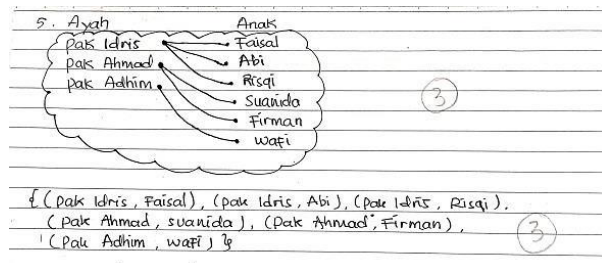 5. Ayah Anak
Pak Idris Faisal
Pak Ahmad Abi
Pak Adhim Risqi
Suanida
Firman
Wafi
3
{(Pak Idris, Faisal), (Pak Idris, Abi), (Pak Idris, Risqi),
(Pak Ahmad, suanida), (Pak Ahmad, Firman),
(Pak Adhim, wafi)}
3